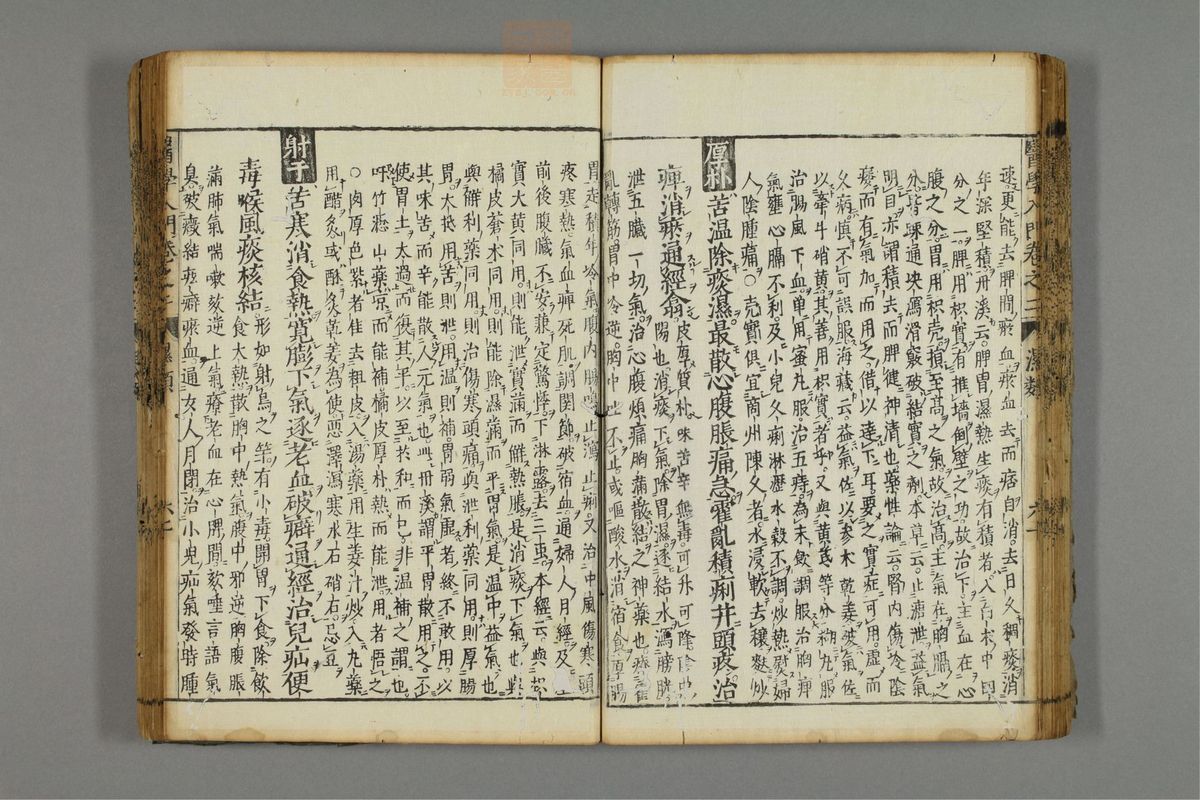 醫學入門卷之二 濕類 六十
速更能去脾間瘀血瘀血去而痞自消去日久稠痰消
年深堅積丹溪云脾胃濕熱生痰有積者入
分之一脾用枳實有推墻倒壁之功故治下主血在心
腹之分胃用枳壳損至高之氣故治高主氣在胸膈之
分皆疎通决瀉滑竅破結實之劑本草云止瀉泄益氣
明目亦謂積去而脾健神清也藥性論云腎内傷冷陰
痿而有氣加而用之借以達下耳要之實症可用虛而
久病慎不可誤服海藏云益氣佐以參木乾姜破氣佐
以牽牛硝黄其善用枳實者乎又與黄芪等分糊丸服
治腸風下血單用蜜丸服治五痔為末飲調服治胸痺
氣壅心膈不利及小兒久痢淋瀝水穀不調炒熱熨婦
人陰腫痛〇壳實俱宜商州陳久者水浸軟去穰麩炒
厚朴 苦温除痰濕最散心腹脹痛急霍亂積痢幷頭疼治
痺消瘀通經翕 皮厚質朴味苦辛無毒可升可降陰中
陽也消痰下氣除胃濕逐結水瀉膀胱
泄五臟一切氣治心腹煩痛胸痛散結之神藥也療霍
亂轉筋胃中冷逆胸中
不止或嘔酸水消宿食厚腸
胃走積年冷氣腹内腸鳴止瀉止痢又治中風傷寒頭
疼寒熱氣血痺死肌調関節破宿血通婦人月經及
前後腹臟不安兼定驚悸下淋露去三䖝本經云與枳
實大黄同用則能泄實滿而解熱脹是消痰下氣也與
橘皮蒼术同用則能除濕滿而平胃氣是温中益氣也
與解利藥同用則治傷寒頭痛與泄利藥同用則厚腸
胃大抵用苦則泄用温則補胃弱氣虛者終不敢用以
其味苦而辛能散人元氣也丹溪謂平胃散用之不
使胃土太過而復其平以至於和而已非温補之謂也
吁竹瀝山藥凉而能補橘皮厚朴熱而能泄用者悟之
〇肉厚色紫者佳去粗皮入湯藥用生姜汁炒入丸藥
用醋炙或酥炙乾姜為使惡澤瀉寒水石硝石忌豆
射干 苦寒消食熱寛膨下氣逐老血破癖通經治兒疝便
毒喉風痰核結 形如射鳥之竿有小毒開胃下食除飲
食大熱散胸中熱氣腹中邪逆胸腹脹
滿肺氣喘嗽欬逆上氣療老血在心脾間欬唾言語氣
臭破癥結痃癖瘀血通女人月閉治小兒疝氣發時腫
醫學入門卷之二 濕類 六十